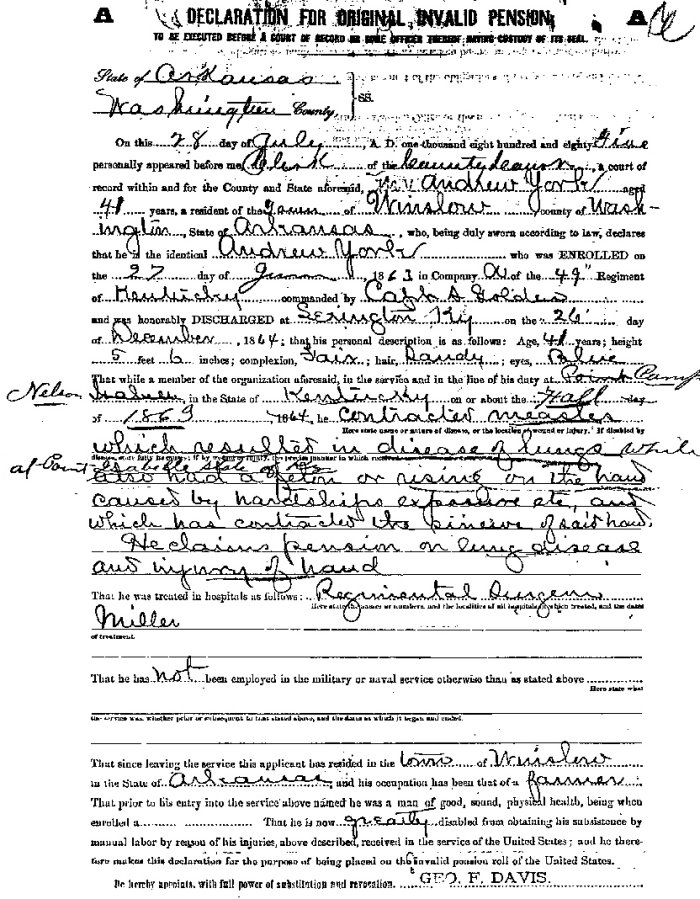 A DECLARATION FOR ORIGINAL INVALID PENSION, A
TO BE EXECUTED BEFORE A COURT OF RECORD OR SOME OFFICER THEREOF HAVING CUSTODY OF ITS SEAL.
State of Arkansas
Washington County, SS.
On this 28 day of July, A. D. one thousand eight hundred and eighty five
personally appeared before me, Clerk of the County Court, a court of
record within and for the County and State aforesaid, Andrew York aged
41 years, a resident of the town of Winslow county of Wash-
ington, State of Arkansas, who, being duly sworn according to law, declares
that he is the identical Andrew York who was ENROLLED on
the 27 day of 1863 in Company of the 49" Regiment
of Kentucky commanded by Capt Golden
and was honorably DISCHARGED at Lexington Ky on the 26 day
of December, 1864; that his personal description is as follows: Age, 41 years; height
5 feet 6 inches; complexion, Fair; hair, Sandy; eyes, Blue
That while a member of the organization aforesaid, in the service and in the line of his duty at Camp
Nelson in the State of Kentucky on or about the Fall day
of 1863 1864, he contracted measles
Here state name or nature of disease, or the location of wound or injury. If disabled by
which resulted in disease of lungs while
at State of Ky
also had a felon or rising on the hand
caused by hardships exposure etc, and
which has contracted the of said hand.
He claims pension on lung disease
and injury of hand
That he was treated in hospitals as follows: Regimental Surgeon
Here state the names or numbers, and the localities of all hospitals in which treated, and the dates
Miller
of treatment.
That he has not been employed in the military or naval service otherwise than as stated above
Here state what
the service was, whether prior or subsequent to that stated above, and the dates at which it began and ended.
That since leaving the service this applicant has resided in the town of Winslow
in the State of Arkansas, and his occupation has been that of a farmer.
That prior to his entry into the service above named he was a man of good, sound, physical health, being when
enrolled a That he is now greatly disabled from obtaining his subsistence by
manual labor by reason of his injuries, above described, received in the service of the United States; and he there-
fore makes this declaration for the purpose of being placed on the invalid pension roll of the United States.
He hereby appoints, with full power of substitution and revocation, GEO. F. DAVIS.